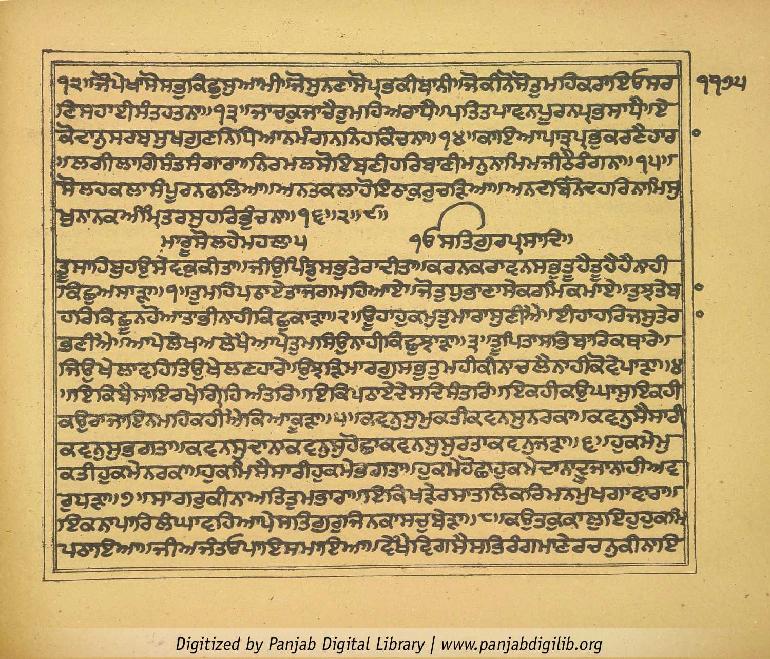 ੧੨॥ਜੋਪੇਖਾਸੋਸਭੁਕਿਛੁਸੁਆਮੀ॥ਜੋਸੁਨਣਾਸੋਪ੍ਰਭਕੀਬਾਨੀ॥ਜੋਕੀਨੋਸੋਤੁਮਹਿਕਰਾਇਓਸਰ
ਣਿਸਹਾਈਸੰਤਹਤਨਾ॥੧੩॥ਜਾਚਕੁਜਾਚੈਤੁਮਹਿਅਰਾਧੈ॥ਪਤਿਤਪਾਵਨਪੂਰਨਪ੍ਰਭਸਾਧੈ॥ਏ
ਕੋਦਾਨੁਸਰਬਸੁਖਗੁਣਨਿਧਿਆਨਮੰਗਨਨਿਹਕਿੰਚਨਾ॥੧੪॥ਕਾਇਆਪਾਤ੍ਰਪ੍ਰਭੁਕਰਣੈਹਾਰ
॥ਲਗੀਲਾਗਿਸੰਤਸੰਗਾਰਾ॥ਨਿਰਮਲਸੋਇਬਣੀਹਰਿਬਾਣੀਮਨੁਨਾਮਿਮਜੀਠੈਰੰਗਨਾ॥੧੫॥
ਸੋਲਹਕਲਾਸੰਪੂਰਨਫਲਿਆ॥ਅਨਤਕਲਾਹੋਇਠਾਕੁਰੁਚੜਿਆ॥ਅਨਦਬਿਨੋਦਹਰਿਨਾਮਿਸੁ
ਖੁਨਾਨਕਅੰਮ੍ਰਿਤਰਸੁਹਰਿਭੁੰਚਨਾ॥੧੬॥੨॥੯॥
ਮਾਰੂਸੋਲਹੇਮਹਲਾ੫ ੧ਓਸਤਿਗੁਰਪ੍ਰਸਾਦਿ॥
ਤੂਸਾਹਿਬੁਹਉਸੇਵਕੁਕੀਤਾ॥ਜੀਉਪਿੰਡੁਸਭੁਤੇਰਾਦੀਤਾ॥ਕਰਨਕਰਾਵਨਸਭੁਤੂਹੈਤੂਹੈਹੈਨਾਹੀ
ਕਿਛੁਅਸਾੜਾ॥੧॥ਤੁਮਹਿਪਠਾਏਤਾਜਗਮਹਿਆਏ॥ਜੋਤੁਧੁਭਾਣਾਸੇਕਰਮਕਮਾਏ॥ਤੁਝਤੇਬ
ਹਰਿਕਿਛੂਨਹੋਆਤਾਭੀਨਾਹੀਕਿਛੁਕਾੜਾ॥੨॥ਊਹਾਹੁਕਮੁਤੁਮਾਰਾਸੁਣੀਐ॥ਈਹਾਹਰਿਜਸੁਤੇਰ
ਭਣੀਐ॥ਆਪੇਲੇਖਅਲੇਖੈਆਪੇਤੁਮਸਿਉਨਾਹੀਕਿਛੁਝਾੜਾ॥੩॥ਤੂਪਿਤਾਸਭਿਬਾਰਿਕਥਾਰੇ॥
ਜਿਉਖੇਲਾਵਹਿਤਿਉਖੇਲਣਹਾਰੇ॥ਉਝੜਿਮਾਰਗੁਸਭੁਤੁਮਹੀਕੀਨਾਚਲੈਨਾਹੀਕੋਵੇਪਾੜਾ॥੪
॥ਇਕਿਬੈਸਾਇਰਖੇਗ੍ਰਿਹਅੰਤਰਿ॥ਇਕਿਪਠਾਏਦੇਸਦਿਸੰਤਰਿ॥ਇਕਹੀਕਉਘਾਸੁਇਕਹੀ
ਕਉਰਾਜਾਇਨਮਹਿਕਹੀਐਕਿਆਕੂੜਾ॥੫॥ਕਵਨਸੁਮੁਕਤੀਕਵਨਸੁਨਰਕਾ॥ਕਵਨੁਸੈਸਾਰੀ
ਕਵਨੁਸੁਭਗਤਾ॥ਕਵਨਸੁਦਾਨਾਕਵਨੁਸੁਹੋਛਾਕਵਨਸੁਸੁਰਤਾਕਵਨੁਜੜਾ॥੬॥ਹੁਕਮੇਮੁ
ਕਤੀਹੁਕਮੇਨਰਕਾ॥ਹੁਕਮਿਸੈਸਾਰੀਹੁਕਮੇਭਗਤਾ॥ਹੁਕਮੇਹੋਛਾਹੁਕਮੇਦਾਨਾਦੂਜਾਨਾਹੀਅਵ
ਰੁਧੜਾ॥੭॥ਸਾਗਰੁਕੀਨਾਅਤਿਤੁਮਭਾਰਾ॥ਇਕਿਖੜੇਰਸਾਤਲਿਕਰਿਮਨਮੁਖਗਾਵਾਰਾ॥
ਇਕਨਾਪਾਰਿਲੰਘਾਵਹਿਆਪੇਸਤਿਗੁਰੁਜਿਨਕਾਸਚੁਬੇੜਾ॥੮॥ਕਉਤਕੁਕਾਲੁਇਹੁਹੁਕਮਿ
ਪਠਾਇਆ॥ਜੀਅਜੰਤਓਪਾਇਸਮਾਇਆ॥ਵੇਖੈਵਿਗਸੈਸਭਿਰੰਗਮਾਣੇਰਚਨੁਕੀਨਾਇ
੧੧੭੫
Digitized by Panjab Digital Library | www.panjabdigilib.org